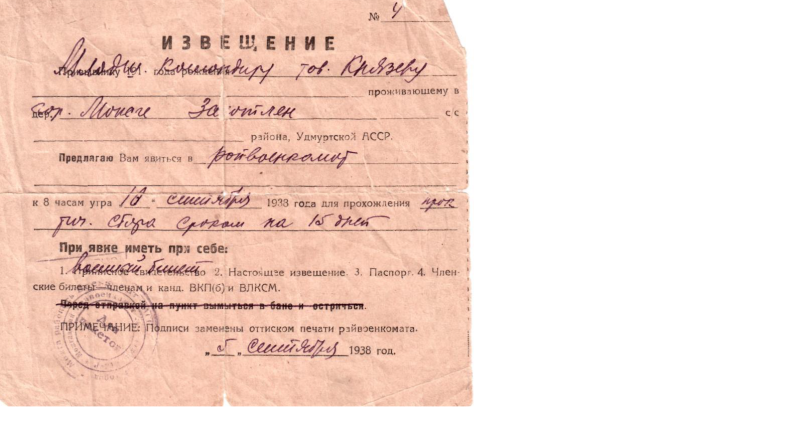 № 4
ИЗВЕЩЕНИЕ
Младш. командиру тов. Князеву
проживающему в
гор. Можге с с
района, Удмуртской АССР.
Предлагаю Вам явиться в райвоенкомат
к 8 часам утра сентября 1938 года для прохождения прак
тич. сбора сроком на 15 дней
При явке иметь при себе:
военный билет
1. Приписное свидетельство 2. Настоящее извещение. 3. Паспорт. 4. Член-
ские билеты—членам и канд. ВКП(б) и ВЛКСМ.
Перед отправкой на пункт вымыться в бане и остричься.
ПРИМЕЧАНИЕ: Подписи заменены оттиском печати райвоенкомата.
сентября 1938 год.
Для
пакетов